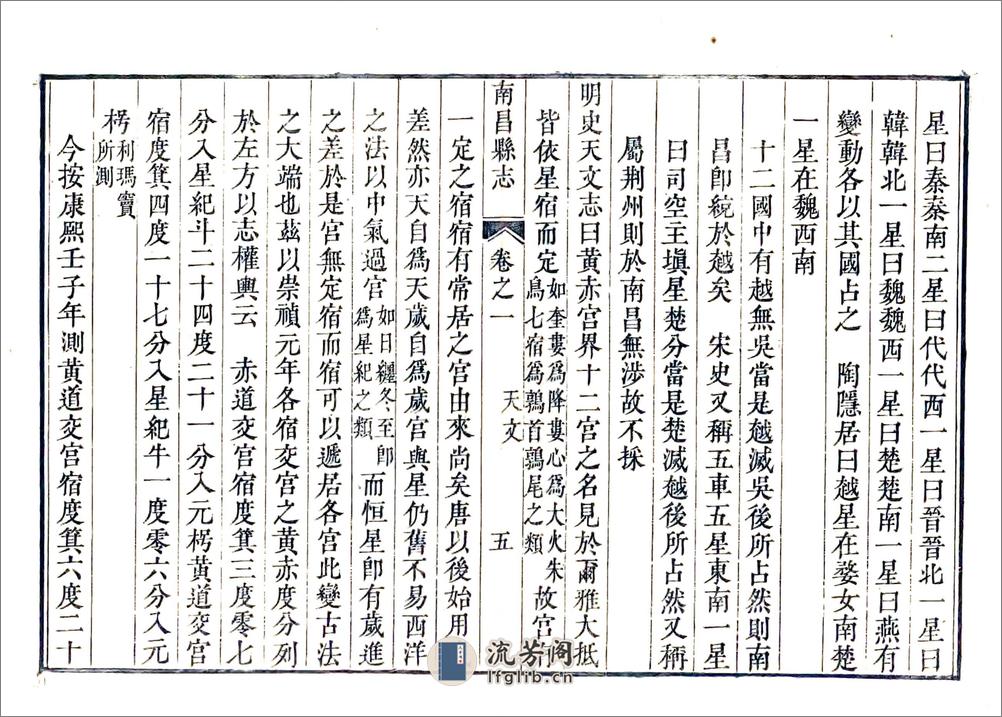 星曰秦秦南二星曰代代西一星曰晉晉北一星曰
韓韓北一星曰魏魏西一星曰楚楚南一星曰燕有
變動各以其國占之　陶隱居曰越星在婺女南楚
一星在魏西南
十二國中有越無吳當是越滅吳後所占然則南
昌卽統於越矣　宋史又稱五車五星東南一星
曰司空主塡星楚分當是楚滅越後所占然又稱
屬荆州則於南昌無涉故不採
明史天文志曰黃赤宮界十二宮之名見於爾雅大抵
皆依星宿而定如奎婁爲降婁心爲大火朱鳥七宿爲鶉首鶉尾之類故宮
南昌縣志　卷之一　天文　五
一定之宿宿有常居之宮由來尚矣唐以後始用
差然亦天自爲天歲自爲歲宮與星仍舊不易西洋
之法以中氣過宮如日纏冬至卽爲星紀之類而恒星卽有歲進
之差於是宮無定宿而宿可以遞居各宮此變古法
之大端也茲以崇禎元年各宿交宮之黃赤度分列
於左方以志權輿云　赤道交宮宿度箕三度零七
分入星紀斗二十四度二十一分入元枵黃道交宮
宿度箕四度一十七分入星紀牛一度零六分入元
枵利瑪竇所測
今按康熙壬子年測黃道交宮宿度箕六度二十
流芳阁
lfglib.cn